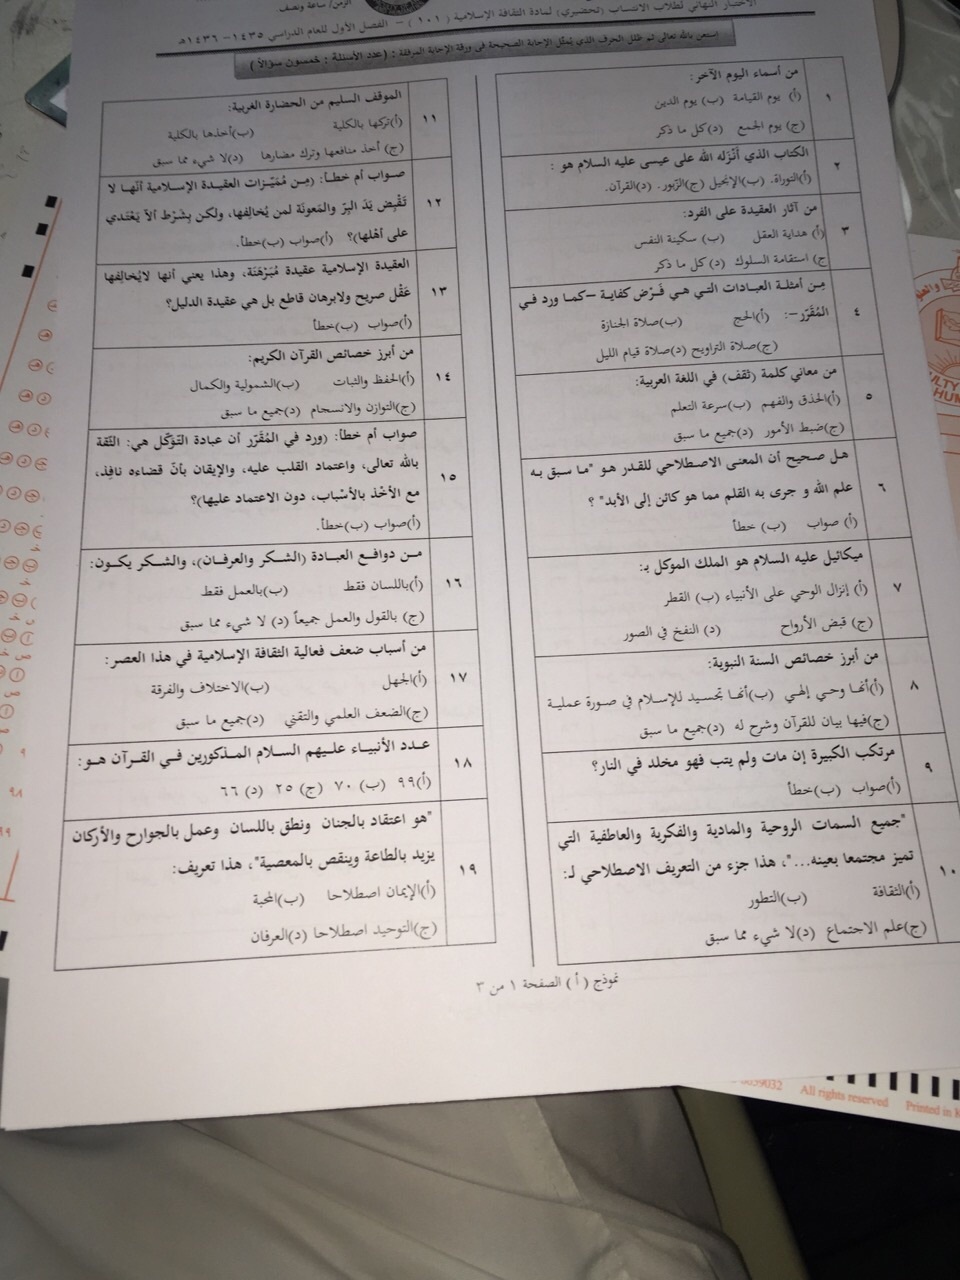 الزمن/ ساعة ونصف.
الاختبار النهائي لطلاب الانتساب (تحضيري) لمادة الثقافة الإسلامية (١٠١) – الفصل الأول للعام الدراسي ١٤٣٥–١٤٣٦هـ
إستعن بالله تعالى ثم ظلل الحرف الذي يُمثّل الإجابة الصحيحة في ورقة الإجابة المرفقة : (عدد الأسئلة : خمسون سؤالاً)
١
من أسماء اليوم الآخر:
(أ) يوم القيامة (ب) يوم الدين
(ج) يوم الجمع (د)كل ما ذكر
٢
الكتاب الذي أنْزَله الله على عيسى عليه السلام هو :
(أ)التوراة. (ب)الإنجيل (ج)الزّبور. (د)القرآن.
٣
من آثار العقيدة على الفرد:
(أ) هداية العقل (ب) سكينة النفس
ج) استقامة السلوك (د)كل ما ذكر
٤
مِـن أمثلـة العبـادات التـي هـي فَـرْض كفايـة –كمـا ورد فـي
المُقَرّر–: (أ)الحج (ب)صلاة الجنازة
(ج)صلاة التراويح (د)صلاة قيام الليل
٥
من معاني كلمة (ثقف) في اللغة العربية:
(أ)الحذق والفهم (ب)سرعة التعلم
(ج)ضبط الأمور (د)جميع ما سبق
٦
هـل صحيح أن المعنى الاصطلاحي للقـدر هـو "مـا سـبق بـه
علم الله و جرى به القلم مما هو كائن إلى الأبد" ؟
(أ) صواب (ب) خطأ
٧
ميكائيل عليه السلام هو الملك الموكل بـ:
(أ) إنزال الوحي على الأنبياء (ب) القطر
(ج) قبض الأرواح (د) النفخ في الصور
٨
من أبرز خصائص السنة النبوية:
(أ)أنها وحي إلهي (ب)أنها تجسيد للإسلام في صورة عملية
(ج)فيها بيان للقرآن وشرح له (د)جميع ما سبق
٩
مرتكب الكبيرة إن مات ولم يتب فهو مخلد في النار؟
(أ)صواب (ب)خطأ
١٠
"جميع السمات الروحية والمادية والفكرية والعاطفية التي
تميز مجتمعا بعينه..."، هذا جزء من التعريف الاصطلاحي لـ:
(أ)الثقافة (ب)التطور
(ج)علم الاجتماع (د)لا شيء مما سبق
١١
الموقف السليم من الحضارة الغربية:
(أ)تركها بالكلية (ب)أخذها بالكلية
(ج) أخذ منافعها وترك مضارها (د)لا شيء مما سبق
١٢
صـواب أم خطـأ: (مِـن مُمَيّـزات العقيـدة الإسلامية أنّهـا لا
تَقْبِض يَدَ البِرّ والمَعونَة لمن يُخالِفها، ولكن بِشَرْط ألاّ يَعْتَدي
على أهْلها)؟ (أ)صواب (ب)خطأ.
١٣
العقيدة الإسلامية عقيدة مُبَرْهَنَة، وهذا يعني أنها لايُخالِفها
عَقْل صريح ولابرهان قاطع بل هي عقيدة الدليل؟
(أ)صواب (ب)خطأ
١٤
من أبرز خصائص القرآن الكريم:
(أ)الحفظ والثبات (ب)الشمولية والكمال
(ج)التوازن والانسجام (د)جميع ما سبق
١٥
صواب أم خطأ: (ورد في المُقَرّر أن عبادة التوَكّل هي: الثّقة
بالله تعالى، واعتماد القلب عليه، والإيقان بأنّ قضاءه نافِذ،
مع الأخْذ بالأسْباب، دون الاعتماد عليها)؟
(أ)صواب (ب)خطأ.
١٦
مـن دوافـع العبـادة (الشـكر والعرفـان)، والشـكر يكـون:
(أ)باللسان فقط (ب)بالعمل فقط
(ج) بالقول والعمل جميعاً (د) لا شيء مما سبق
١٧
من أسباب ضعف فعالية الثقافة الإسلامية في هذا العصر:
(أ)الجهل (ب)الاختلاف والفرقة
(ج)الضعف العلمي والتقني (د)جميع ما سبق
١٨
عـدد الأنبيـاء علـيهم السـلام المـذكورين فـي القـرآن هـو:
(أ)٩٩ (ب) ٧٠ (ج) ٢٥ (د) ٦٦
١٩
"هو اعتقاد بالجنان ونطق باللسان وعمل بالجوارح والأركان
يزيد بالطاعة وينقص بالمعصية"، هذا تعريف:
(أ)الإيمان اصطلاحا (ب)المحبة
(ج)التوحيد اصطلاحا (د)العرفان
نموذج ( أ ) الصفحة ١ من ٣
All rights reserved
Printed in